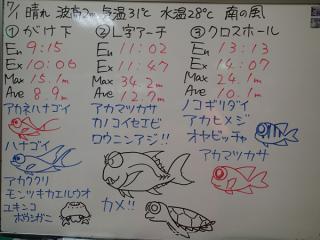 7/1 晴れ 波高2m 気温31℃ 水温28℃ 南の風
①がけ下
En 9:15
Ex 10:06
Max 15.1m
Ave 8.9m
アカネハナゴイ
ハナゴイ
アカククリ
モンツキカエルウオ
ユキンコ
ボウシガニ
②L字アーチ
En 11:02
Ex 11:47
Max 34.2m
Ave 12.7m
アカマツカサ
カノコイセエビ
ロウニンアジ!!
カメ!!
③クロスホール
En 13:13
Ex 14:07
Max 24.1m
Ave 10.1m
ノコギリダイ
アカヒメジ
オヤビッチャ
アカマツカサ